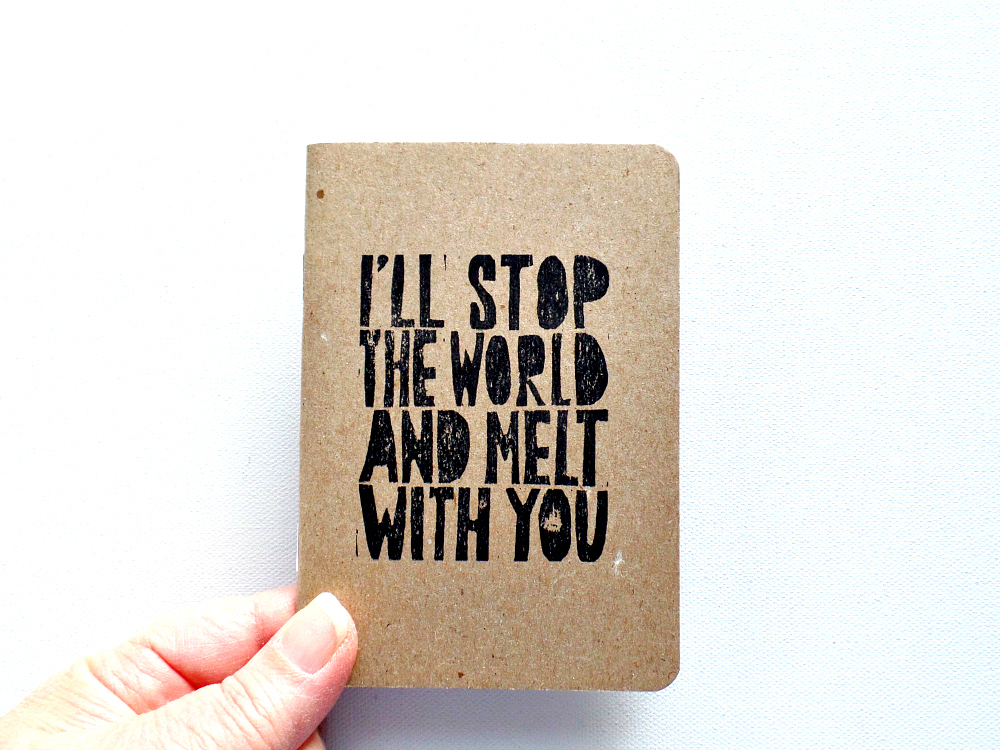 I'LL STOP
THE WORLD
AND MELT
WITH YOU